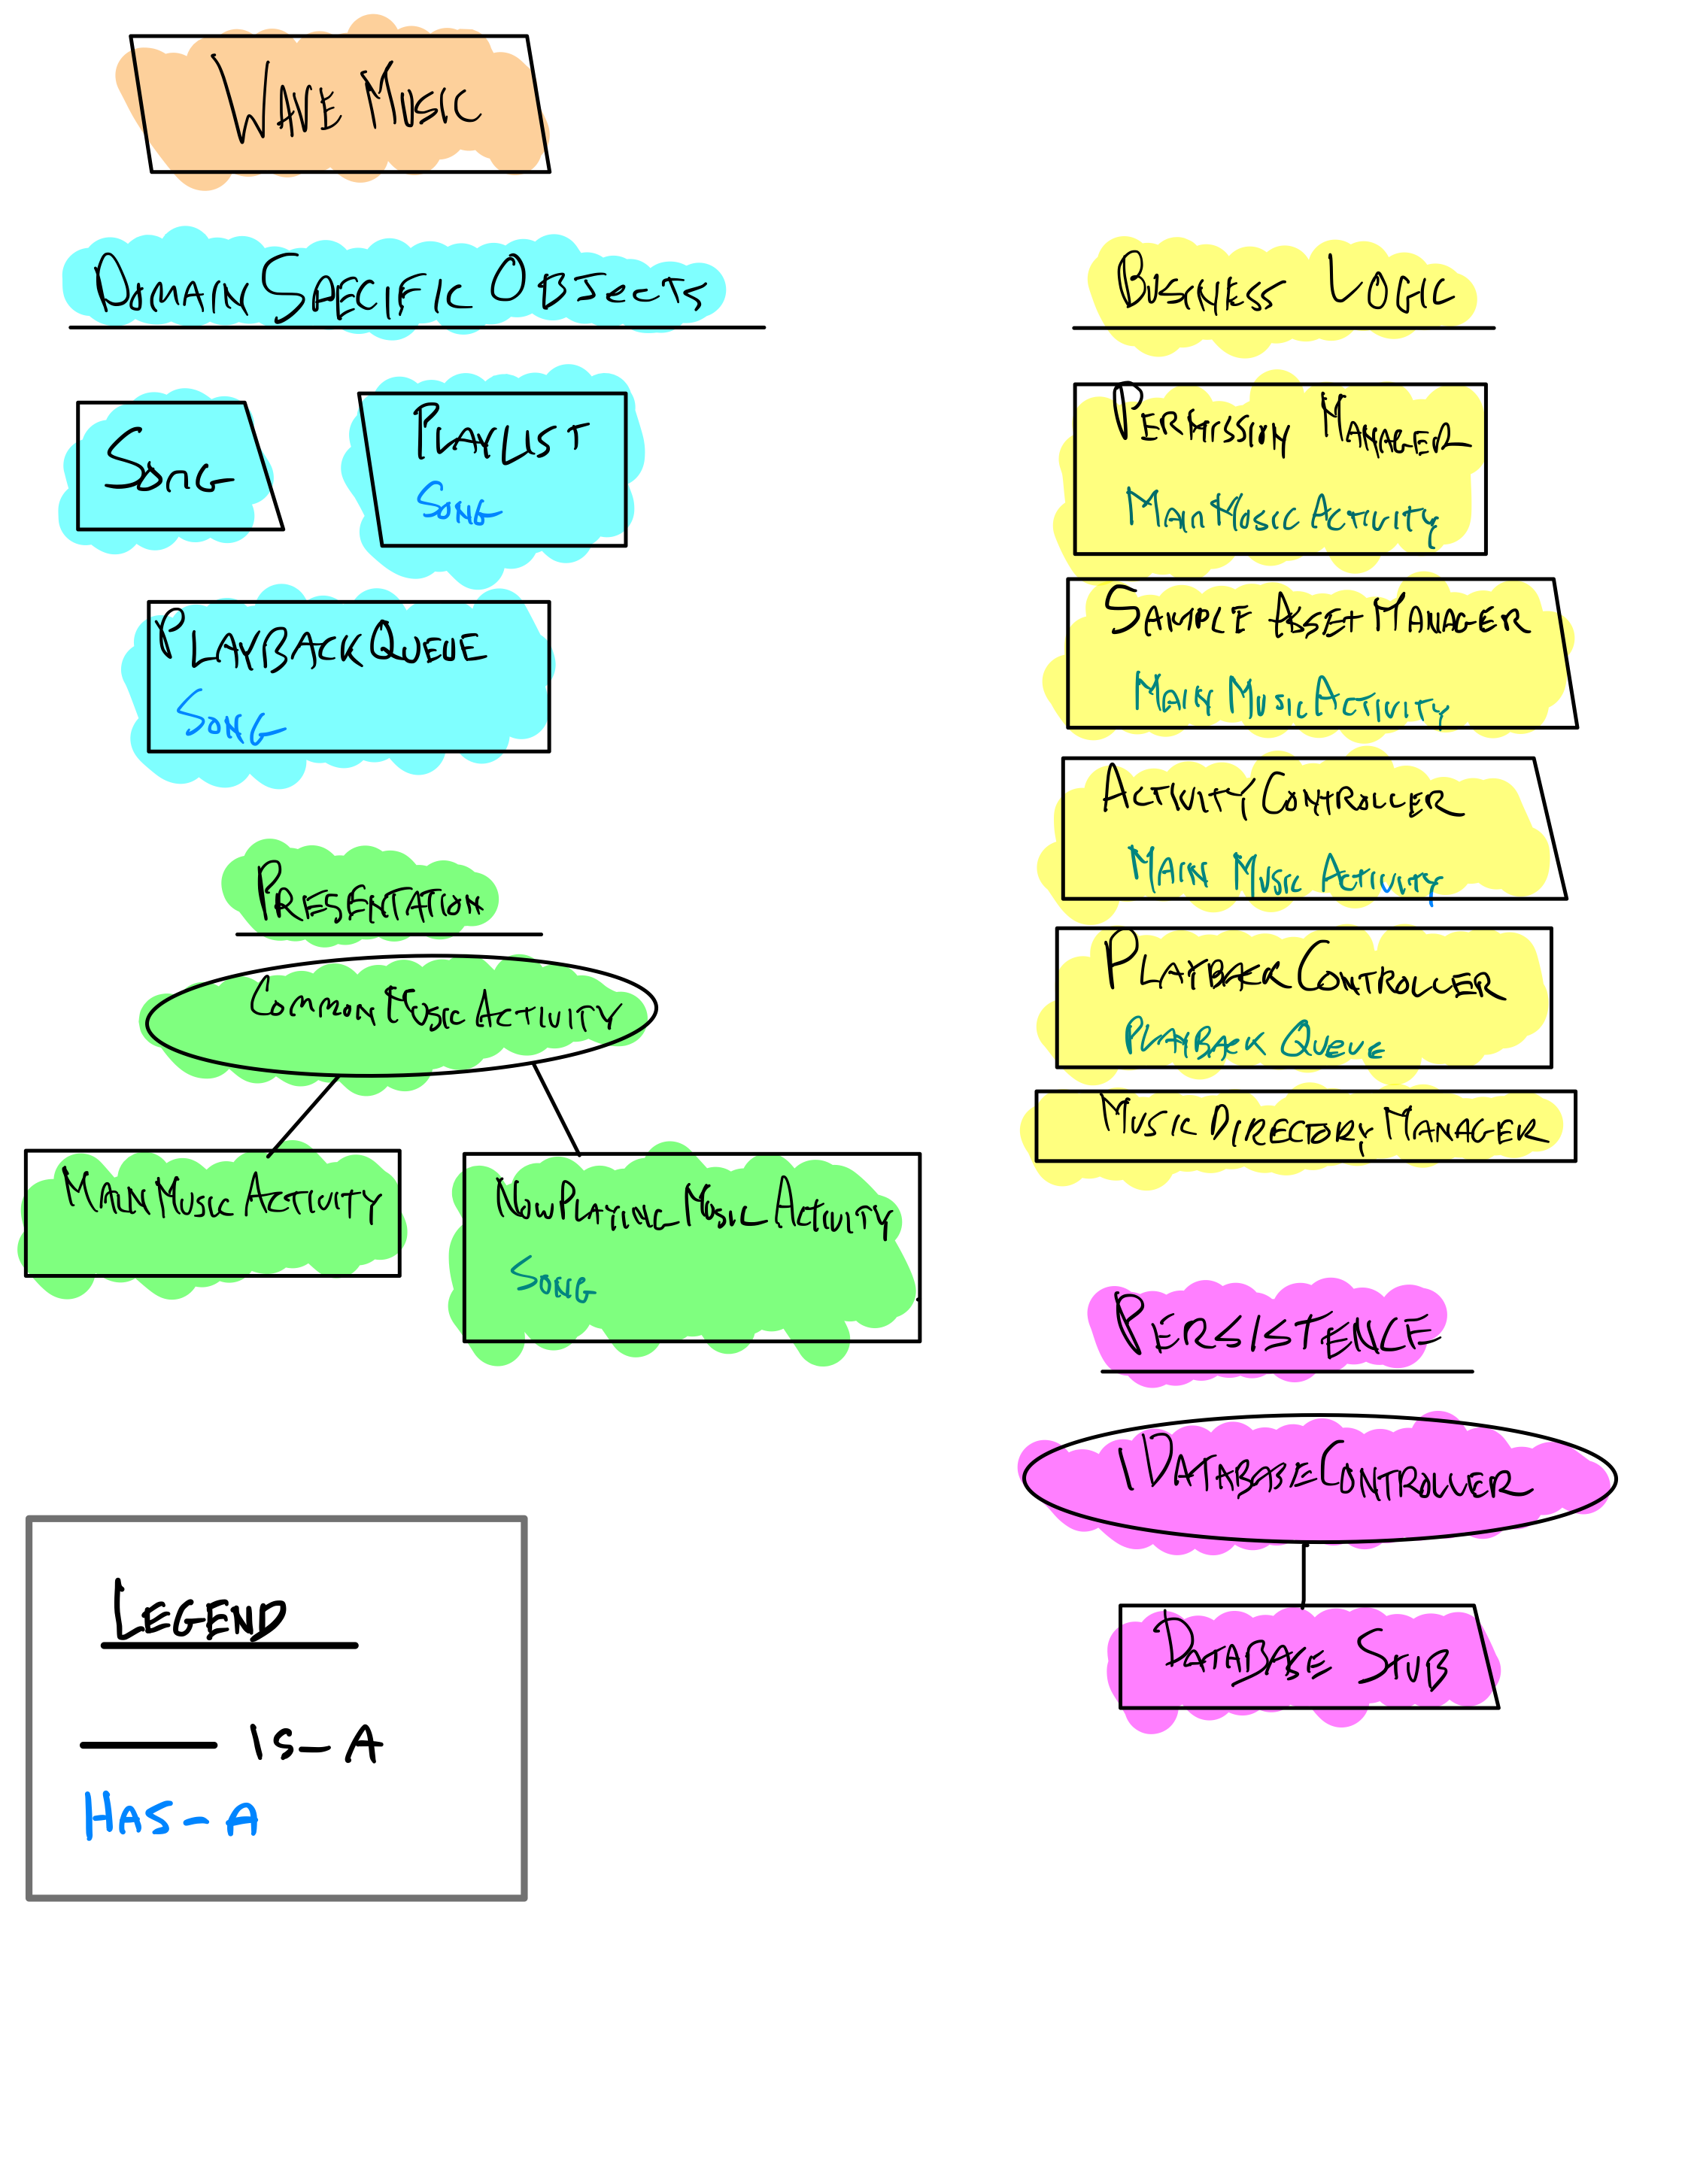 WAVE MUSIC
DOMAIN SPECIFIC OBJECTS
SONG
PLAYLIST
SONG
PLAYBACKQUEUE
SONG
PRESENTATION
COMMON MUSIC ACTIVITY
MAIN MUSIC ACTIVITY
NOW PLAYING MUSIC ACTIVITY
SONG
BUSINESS LOGIC
PERMISSION MANAGER
MAIN MUSIC ACTIVITY
SAMPLE ASSET MANAGER
MAIN MUSIC ACTIVITY
ACTIVITY CONTROLLER
MAIN MUSIC ACTIVITY
PLAYBACK CONTROLLER
PLAYBACK QUEUE
MUSIC DIRECTORY MANAGER
PERSISTENCE
IDATABASECONTROLLER
DATABASE STUB
LEGEND
IS-A
HAS-A